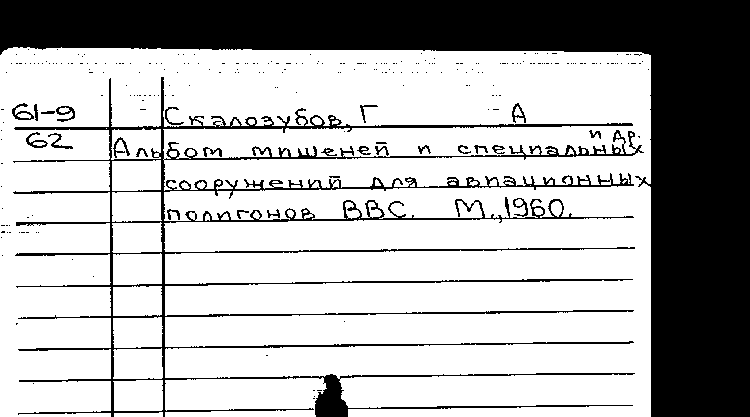 61-9 Скалозубов, Г А
62 и др.
Альбом мишеней и специальных
сооружений для авиационных
полигонов ВВС. М., 1960.